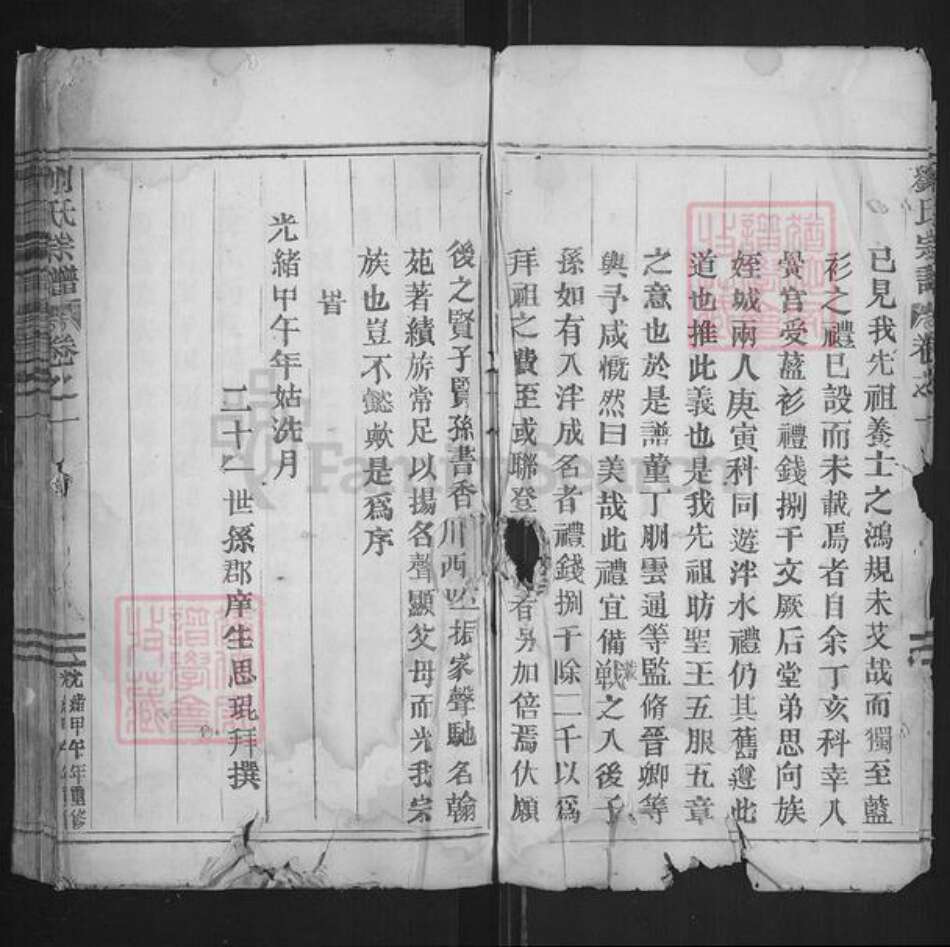 劉氏宗譜 卷之一
已見我先祖養士之鴻規未艾哉而獨至藍
衫之禮已設而未載焉者自余丁亥科幸入
黌宮受藍衫禮錢捌千文厥后堂弟思向族
姪城兩人庚寅科同遊泮水禮仍其舊遵此
道也推此義也是我先祖昉聖王五服五章
之意也於是譜董丁朋雲通等監脩晉卿等
與予咸慨然曰美哉此禮宜備載之入後子
孫如有入泮成名者禮錢捌千除二千以爲
拜祖之費至或聯登者另加倍焉伏願
後之賢子賢孫書香川西振家聲馳名翰
苑著績旂常足以揚名聲顯父母而光我宗
族也豈不懿歟是爲序
旹
光緒甲午年姑洗月
三十一世孫郡庠生思珗拜撰
劉氏宗譜 卷之一
光緒甲午年重修
FamilySearch